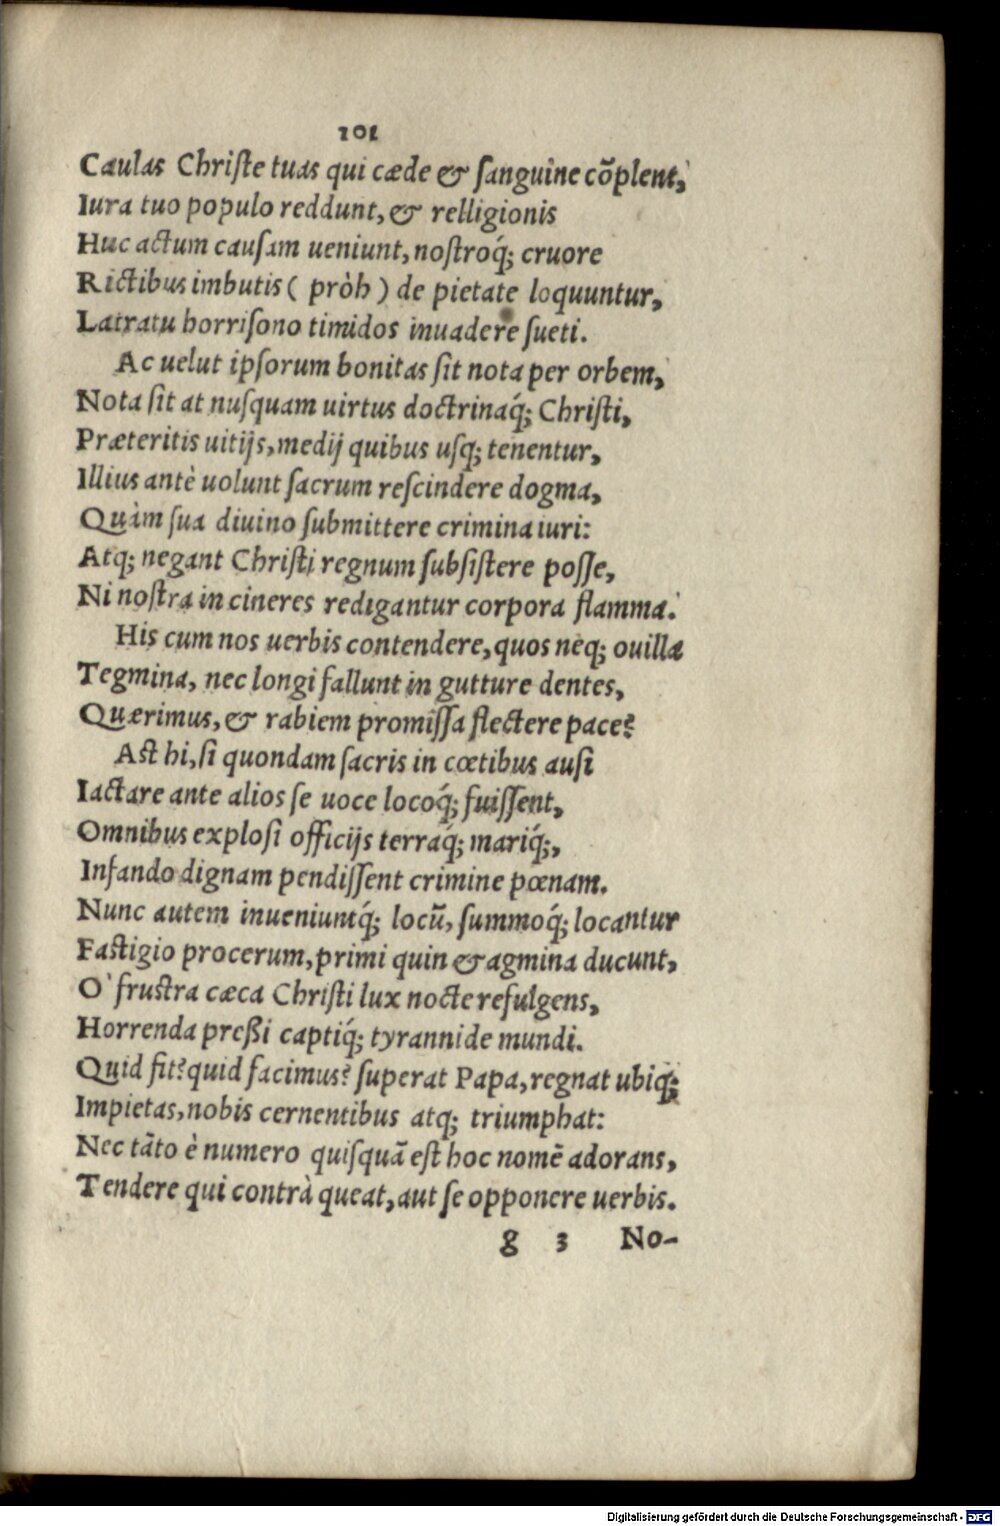 101
Caulas Christe tuas qui cæde & sanguine cõplent,
Iura tuo populo reddunt, & relligionis
Huc actum causam ueniunt, nostroq́; cruore
Rictibus imbutis ( pròh ) de pietate loquuntur,
Latratu horrisono timidos inuadere sueti.
Ac uelut ipsorum bonitas sit nota per orbem,
Nota sit at nusquam uirtus doctrinaq́; Christi,
Præteritis uitijs, medij quibus usq; tenentur,
Illius antè uolunt sacrum rescindere dogma,
Quàm sua diuino submittere crimina iuri:
Atq; negant Christi regnum subsistere posse,
Ni nostra in cineres redigantur corpora flamma.
His cum nos uerbis contendere, quos neq; ouilla
Tegmina, nec longi fallunt in gutture dentes,
Quærimus, & rabiem promissa flectere pace?
Ast hi, si quondam sacris in cœtibus ausi
Iactare ante alios se uoce locoq́; fuissent,
Omnibus explosi officijs terraq́; mariq́;,
Infando dignam pendissent crimine pœnam.
Nunc autem inueniuntq́; locũ, summoq́; locantur
Fastigio procerum, primi quin & agmina ducunt,
O` frustra cæca Christi lux nocte refulgens,
Horrenda preßi captiq́; tyrannide mundi.
Quid fit? quid facimus? superat Papa, regnat ubiq;
Impietas, nobis cernentibus atq; triumphat:
Nec tãto è numero quisquã est hoc nomẽ adorans,
Tendere qui contrà queat, aut se opponere uerbis.
g 3 No-
Digitalisierung gefördert durch die Deutsche Forschungsgemeinschaft - DFG